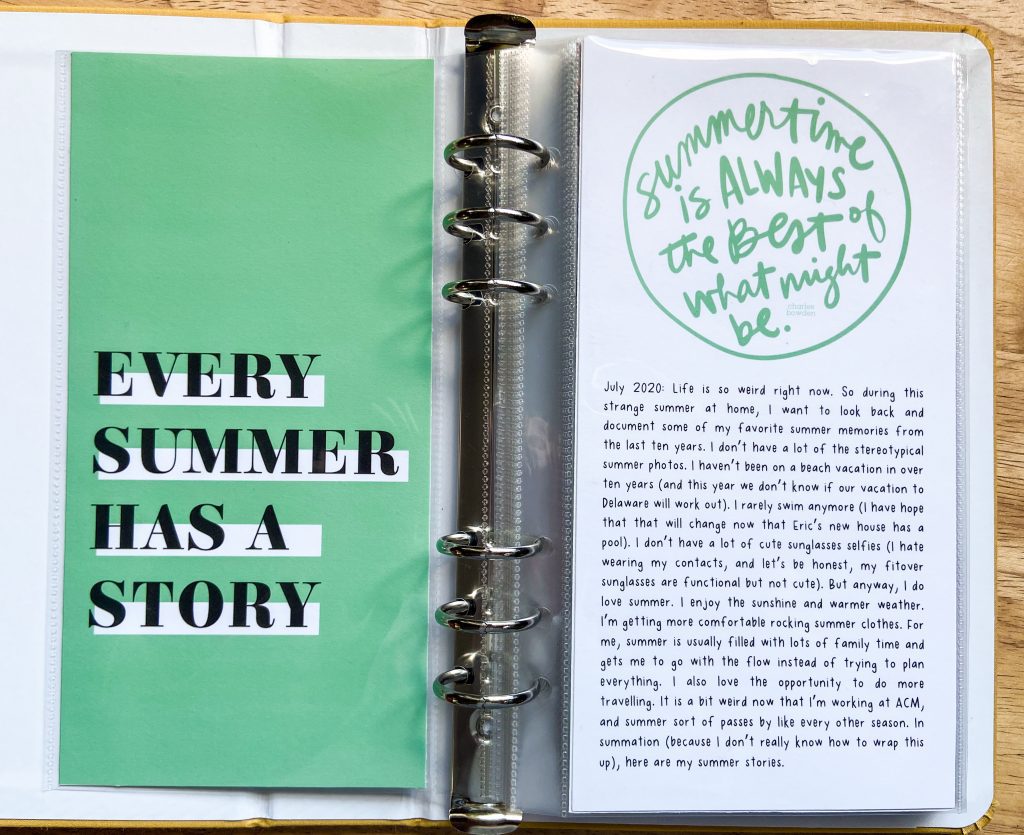 EVERY
SUMMER
HAS A
STORY
summertime
is ALWAYS
the BEST of
what might
be.
charles
bowden
July 2020: Life is so weird right now. So during this
strange summer at home, I want to look back and
document some of my favorite summer memories from
the last ten years. I don't have a lot of the stereotypical
summer photos. I haven't been on a beach vacation in over
ten years (and this year we don't know if our vacation to
Delaware will work out). I rarely swim anymore (I have hope
that that will change now that Eric's new house has a
pool). I don't have a lot of cute sunglasses selfies (I hate
wearing my contacts, and let's be honest, my fitover
sunglasses are functional but not cute). But anyway, I do
love summer. I enjoy the sunshine and warmer weather.
I'm getting more comfortable rocking summer clothes. For
me, summer is usually filled with lots of family time and
gets me to go with the flow instead of trying to plan
everything. I also love the opportunity to do more
travelling. It is a bit weird now that I'm working at ACM,
and summer sort of passes by like every other season. In
summation (because I don't really know how to wrap this
up), here are my summer stories.